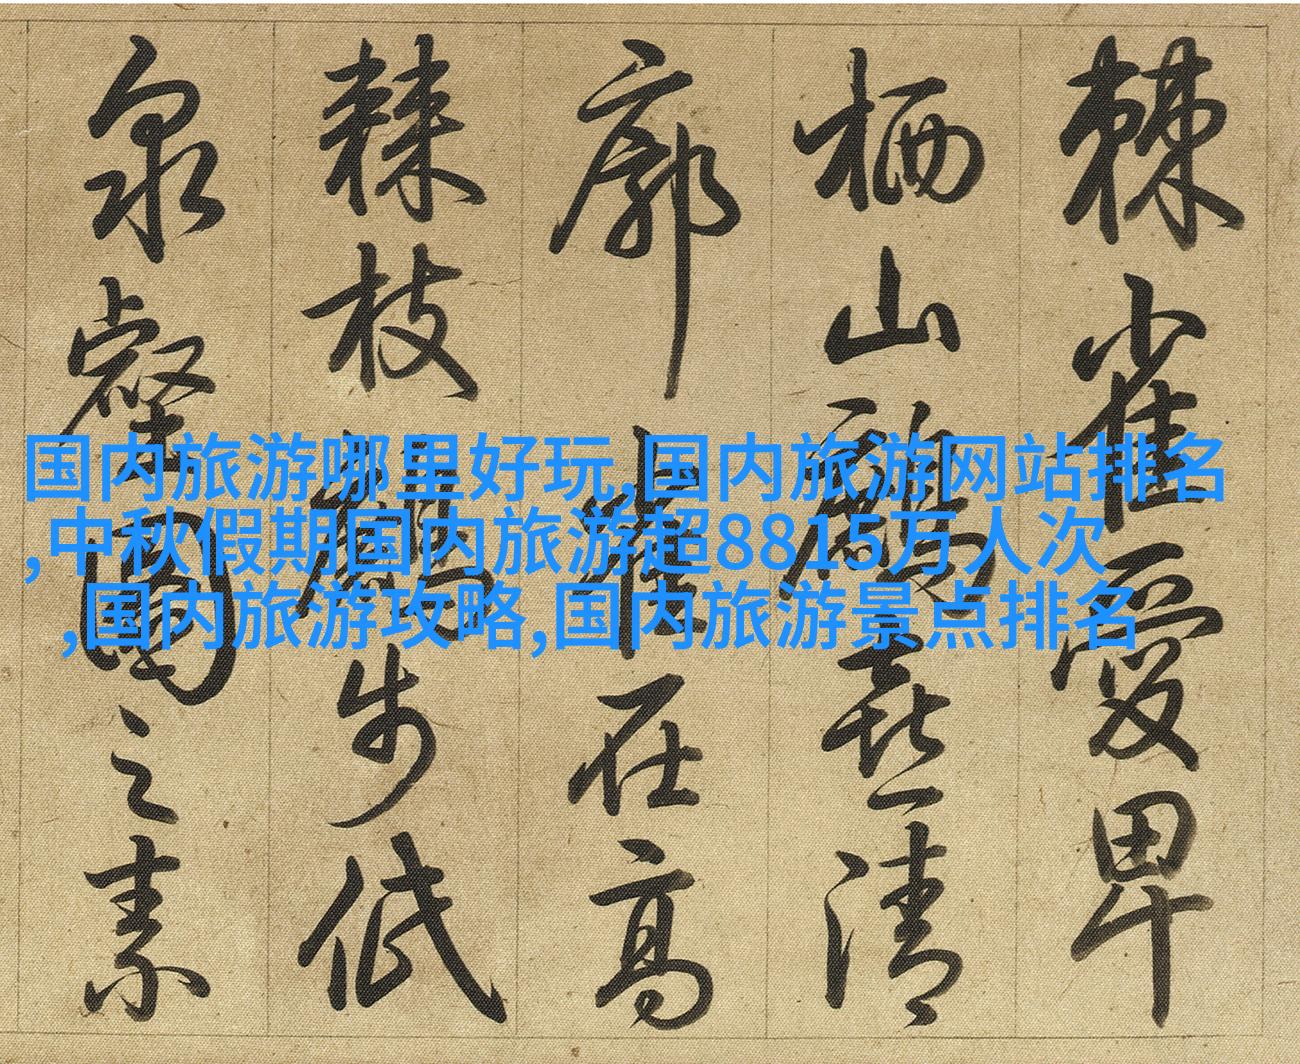 棘雀愛卑
栖山鷓意清
廓
在高
棘枝鷓步低
泉壑園之素
国内旅游哪里好玩,国内旅游网站排名
,中秋假期国内旅游超8815万人次
,国内旅游攻略,国内旅游景点排名